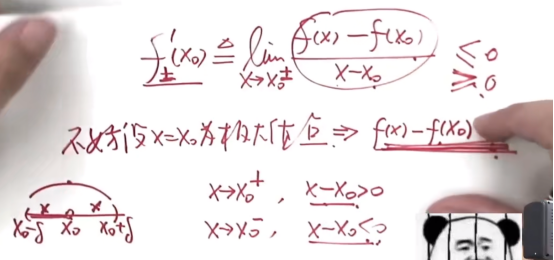 f'±(x₀) ≜ lim x→x₀± (f(x) − f(x₀)) / (x − x₀) ≤ 0
≥ 0
不妨设 x=x₀为极大值点 ⇒ f(x) − f(x₀)
x→x₀⁺ , x−x₀>0
x→x₀⁻ , x−x₀<0
x x
x₀−δ x₀ x₀+δ